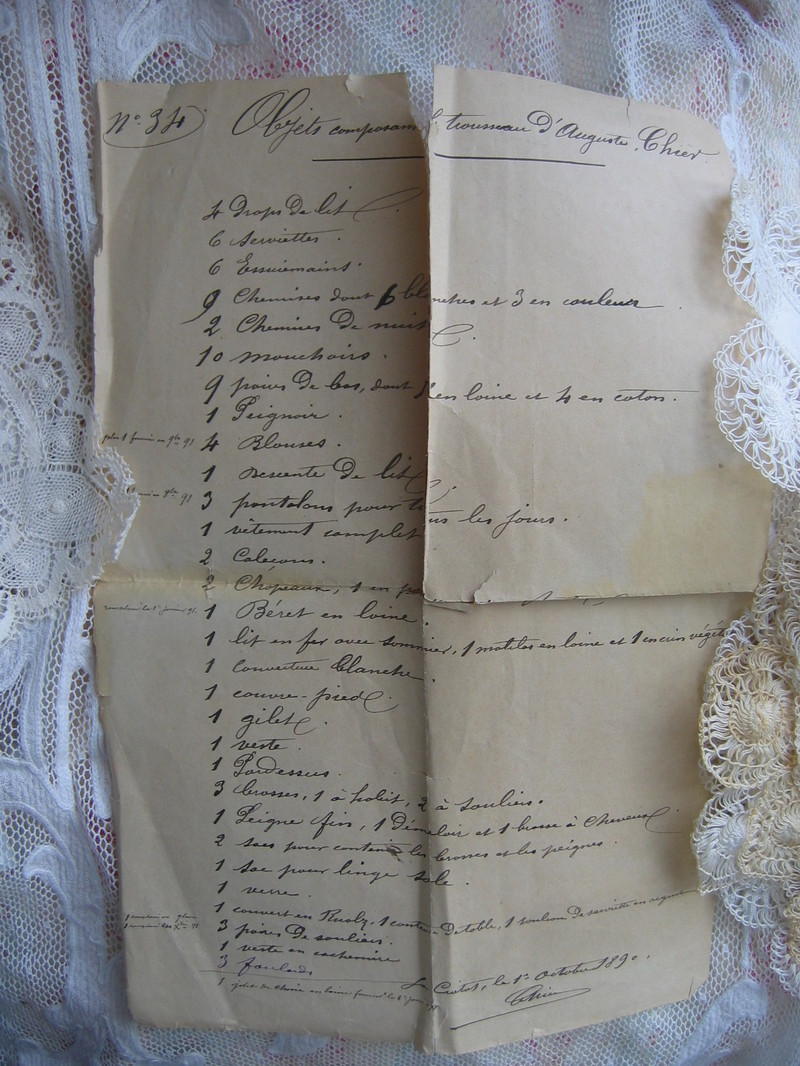 N° 34
Objets composant trousseau d'Auguste Chier
4 Draps de lit.
6 serviettes.
6 Essuiemains.
9 Chemises dont 6 blanches et 3 en couleur.
2 Chemises de nuit.
10 mouchoirs.
9 paires de bas, dont 5 en laine et 4 en coton.
1 Peignoir.
4 Blouses.
1 Descente de lit.
3 pantalons pour tous les jours.
1 vêtement complet
2 Caleçons.
2 Chapeaux, 1 en
1 Béret en laine.
1 lit en fer avec sommier, 1 matelas en laine et 1 en crin
1 Couverture blanche.
1 couvre-pied.
1 gilet.
1 veste.
1 Pardessus.
3 brosses, 1 à habit, 2 à souliers.
1 Peigne fin, 1 Démêloir et 1 brosse à cheveux.
2 sacs pour contenir les brosses et les peignes.
1 sac pour linge sale.
1 verre.
1 couvert en Ruolz, 1 couteau de table, 1 de serviette en argent
3 paires de souliers.
1 veste en cachemire
3 foulards
La Ciotat, le 1er Octobre 1890.
Chier